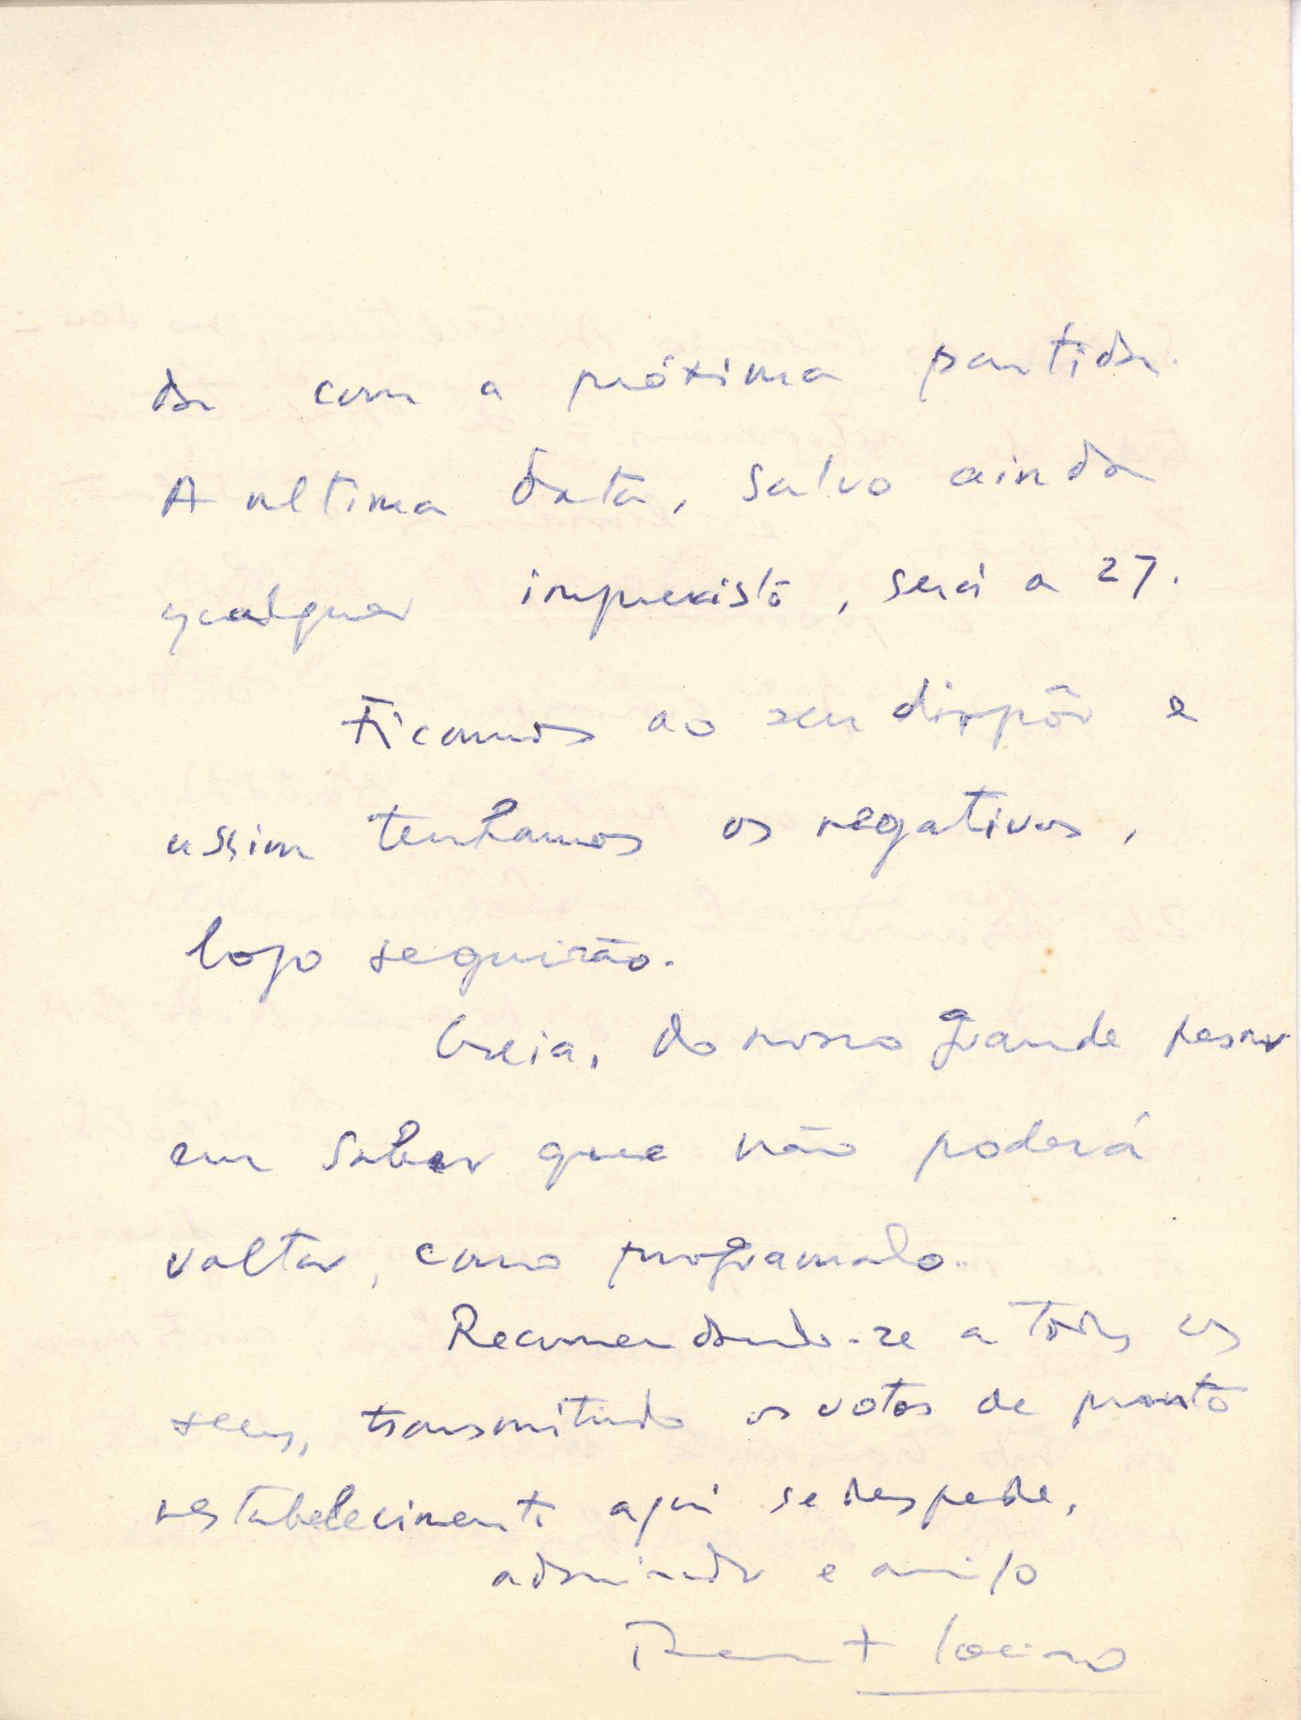 da com a próxima partida.
A ultima data, salvo ainda
qualquer imprevisto, será a 27.
Ficamos ao seu dispôr e
assim tenhamos os negativos,
logo seguirão.
Creia, do nosso grande pesar
em saber que não poderá
voltar, como programado.
Recomendando-se a todos os
seus, transmitindo os votos de pronto
restabelecimento aqui se despede,
admirador e amigo